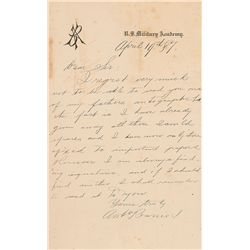 U.S. Military Academy.
April 19th 87.
Dear Sir
I regret very much
not to be able to send you one
of my fathers autographs to
the fact is I have already
given away all those I could
spare and I have now only those
affixed to important papers.
However I am always finding
signatures, and if I should
find another I shall remember
to send it to you.
Yours truly